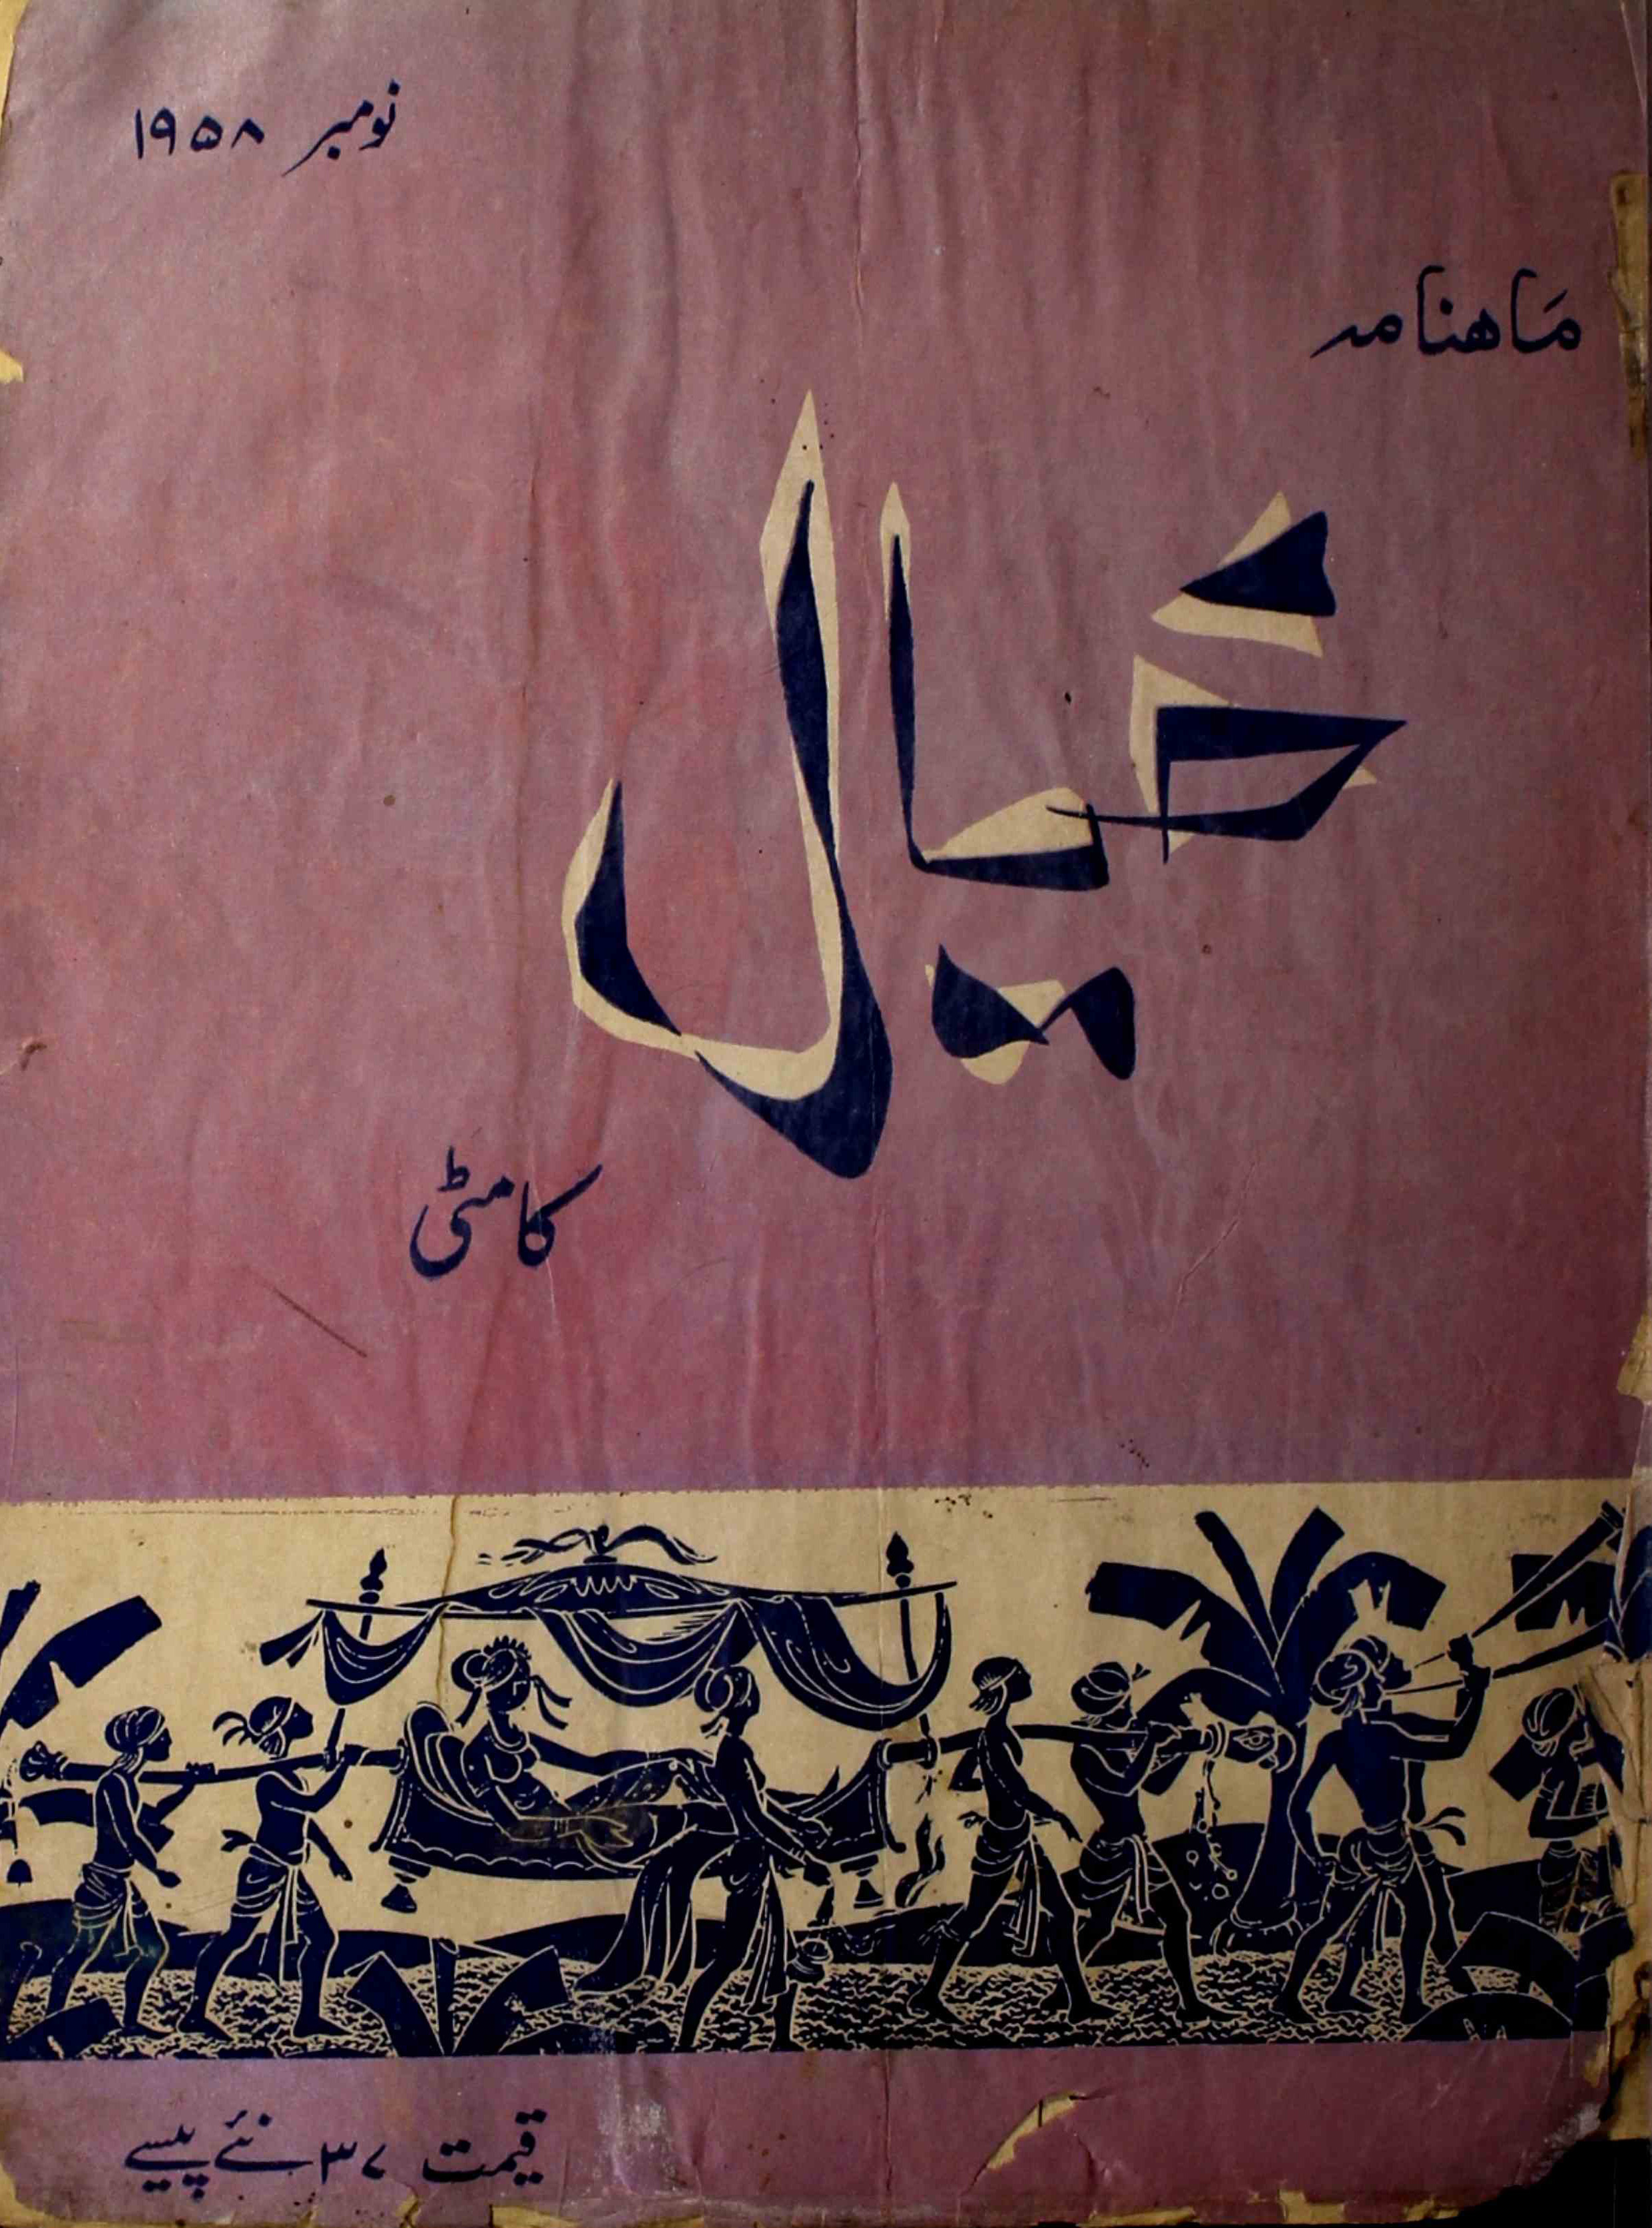 نومبر ۱۹۵۸
ماهنامہ
خیال
کامٹی
قیمت ۳۷ نئے پیسے